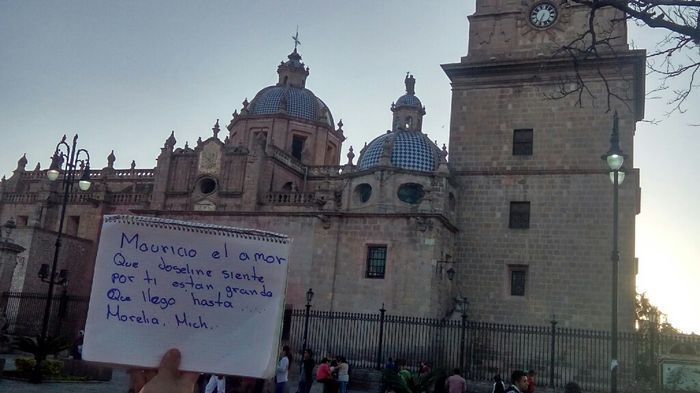 Mauricio el amor
Que doseline siente
por ti es tan grande
Que llego hasta ....
Morelia, Mich.